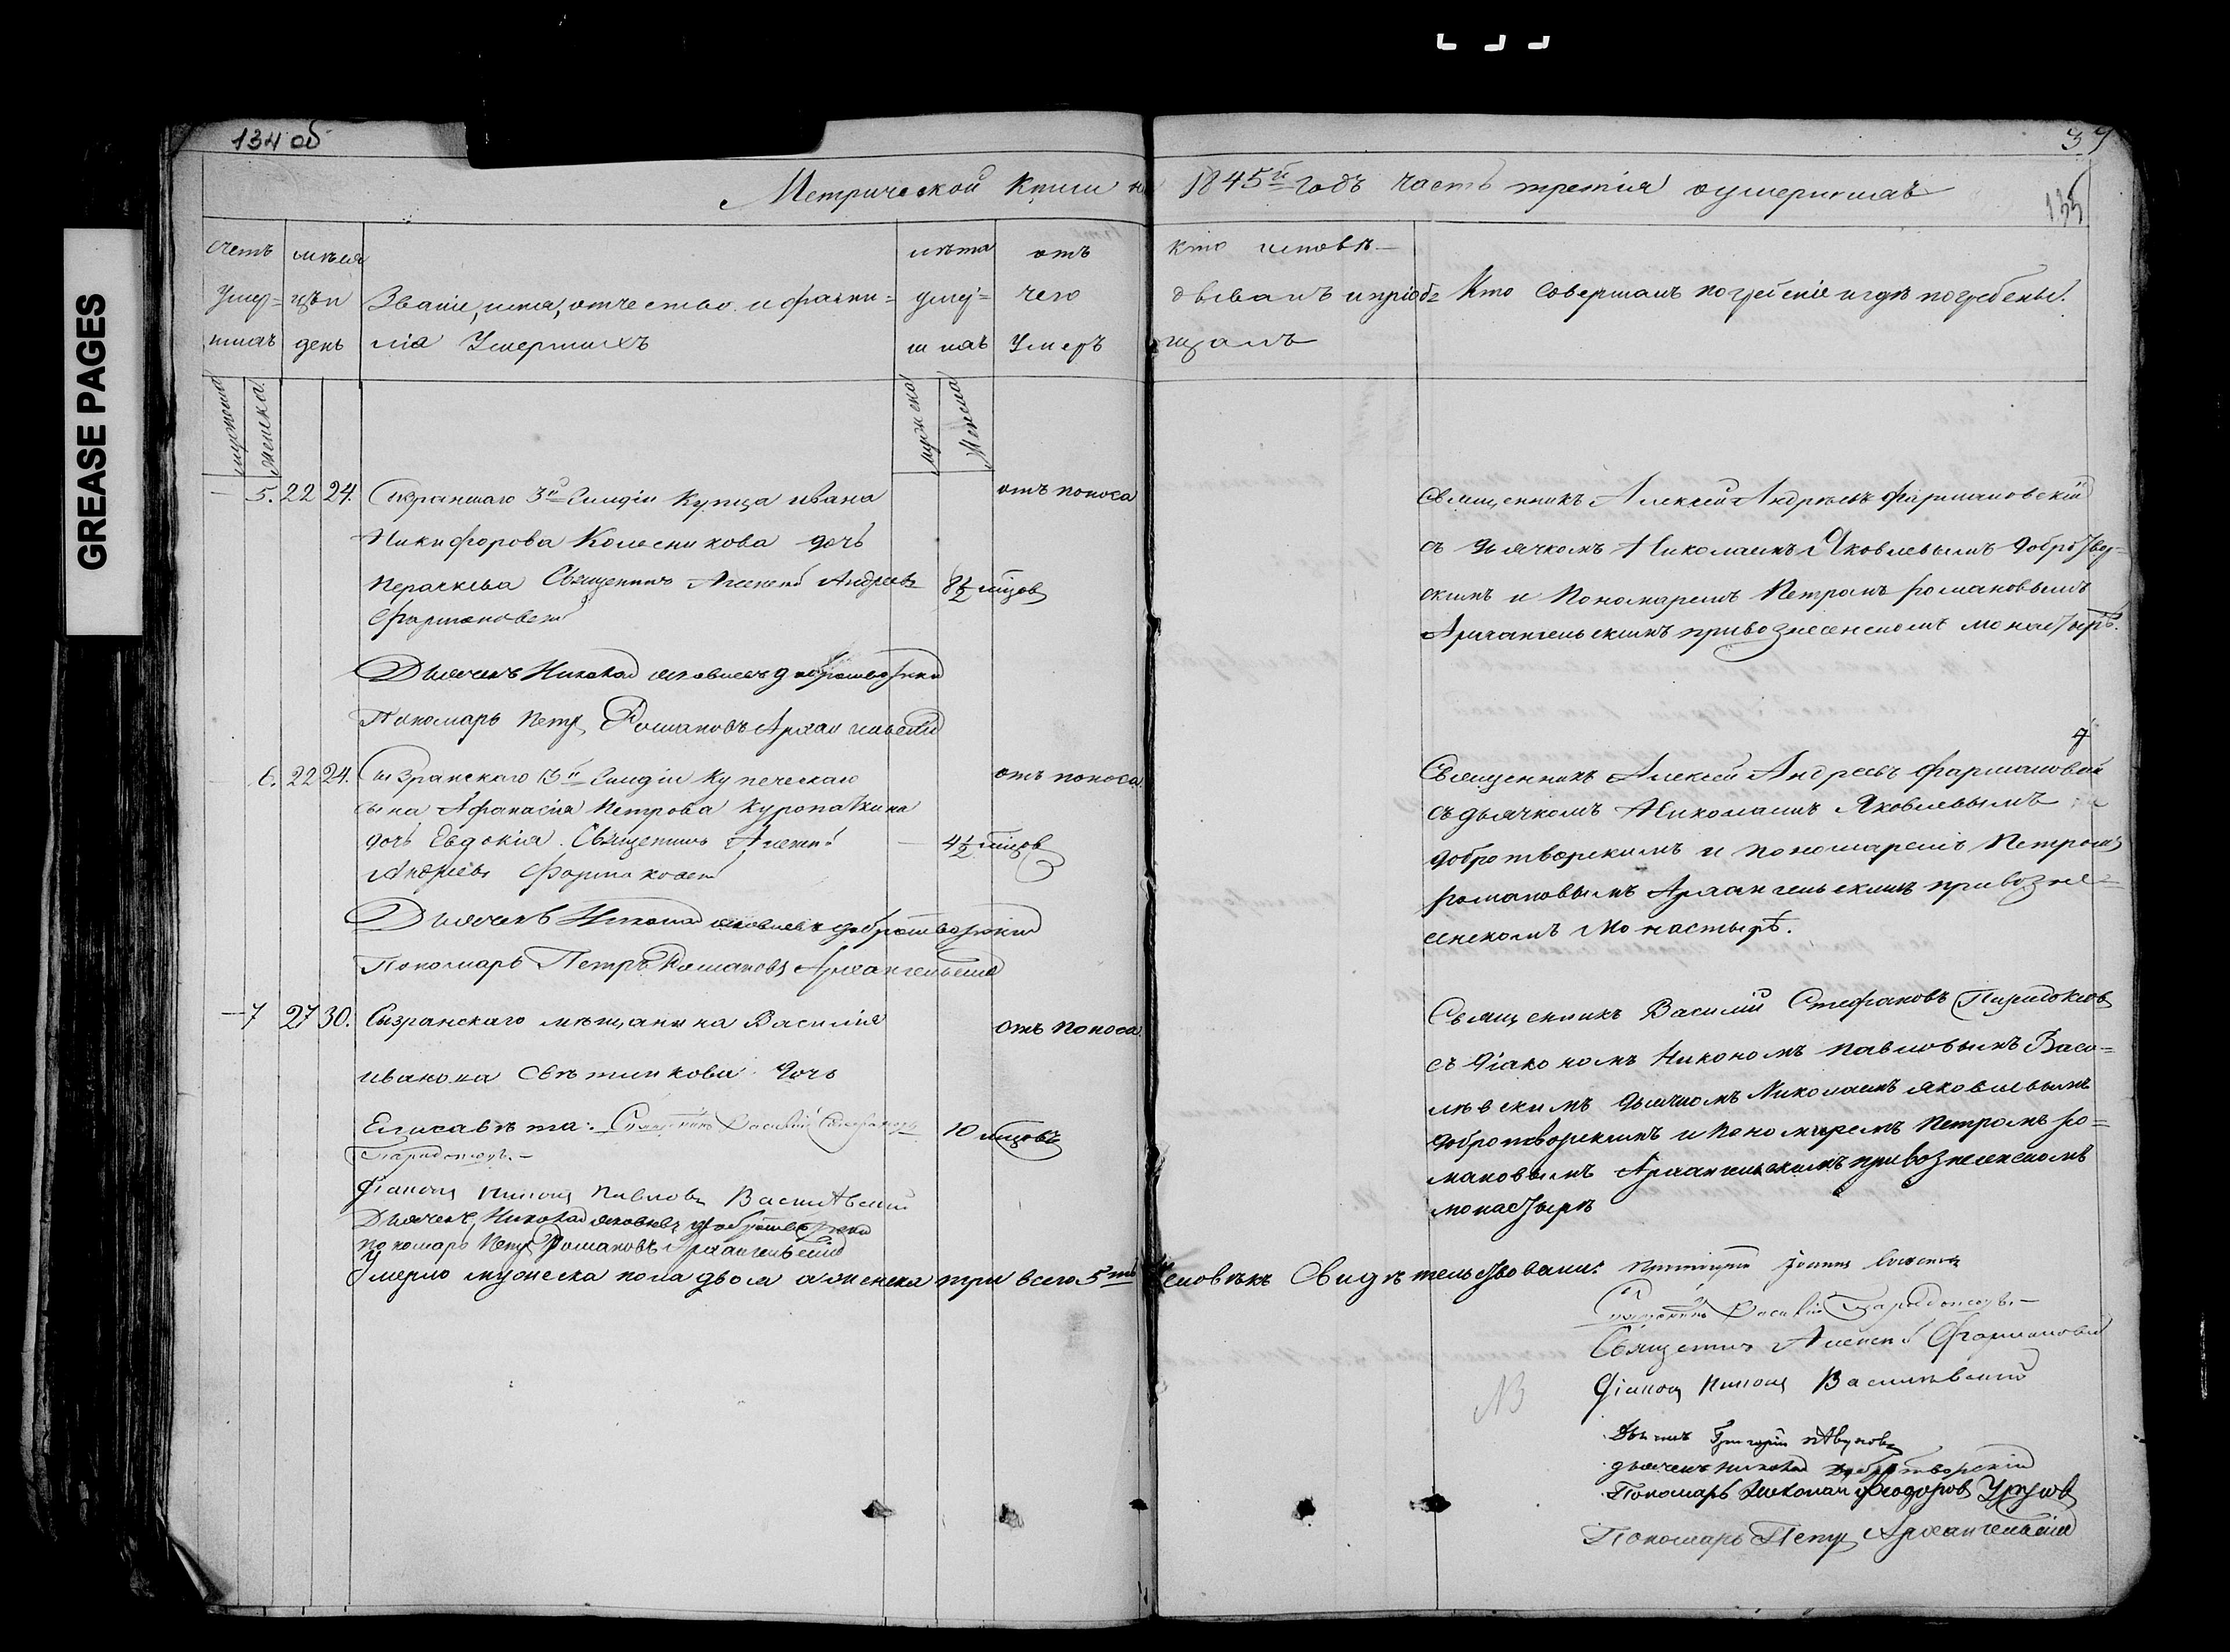 GREASE PAGES
134 об
39
135
Метрической Книги на 1845й Годъ часть третія оумершихъ
Счетъ умер=шихъ
мужеска
женска
мѣсяцъ и день
Званіе, имя, отчество и фами=
лія Умершихъ
лѣта умер=шихъ
мужеска
Женска
отъ чего Умеръ
кто исповѣ-
дывалъ и пріоб=
щалъ
Кто совершалъ погребеніе и гдѣ погребены.
— 5. 22 24.
Сызранскаго 3й Гилдіи Купца ивана
Никифорова Колесникова дочь
Параскева Священникъ Алексей Андреевъ
Фармаковскій
Дьячекъ Николай яковлевъ добротворскій
Пономарь Петръ Романовъ Архангельскій
8 1/2 мцов
отъ поноса
Священникъ Алексей Андреевъ Фармаковскій
съ дьячкомъ Николаемъ Яковлевымъ Добротвор=
скимъ и Пономаремъ Петромъ романовымъ
Архангельскимъ при вознесенскомъ монастырѣ.
6. 22 24.
Сызранскаго 3й Гилдіи купеческаго
сына Афанасія Петрова Куропаткина
дочь Евдокія. Священникъ Алексей
Андреевъ Фармаковскій
Дьячекъ Николай яковлевъ добротворскій
Пономарь Петръ Романовъ Архангельскій
— 4 1/2 мцов
отъ поноса.
Священникъ Алексей Андреевъ Фармаковскій
съ дьячкомъ Николаемъ Яковлевымъ
добротворскимъ и пономаремъ Петромъ
романовымъ Архангельскимъ при возне=
сенскомъ Монастырѣ.
— 7 27 30.
Сызранскаго мѣщанина Василія
иванова Свѣтникова дочь
Елисавѣта: Священникъ Василій Стефановъ
Парадоксовъ.—
Діаконъ Никонъ Павловъ Василевскій
Дьячекъ Николай яковлевъ добротворскій
пономарь Петръ Романовъ Архангельскій
10 мцовъ
отъ поноса.
Священникъ Василій Стефановъ Парадоксовъ
съ діакономъ Никономъ павловымъ Васи=
лѣвскимъ дьячкомъ Николаемъ яковлевымъ
добротворскимъ и пономаремъ петромъ ро=
мановымъ Архангельскимъ при вознесенскомъ
монастырѣ
Умерло мужеска пола двое а женска три всего 5ть человѣкъ Свидѣтельствовали: Протоіерей Іоаннъ
Священникъ Василій Парадоксовъ.—
Священникъ Алексей Фармаковскій
Діаконъ Никонъ Василевскій
NB
Дьячекъ Григорій
дьячекъ николай добротворскій
Пономарь Николай Феодоров
Пономарь Петръ Архангельскій